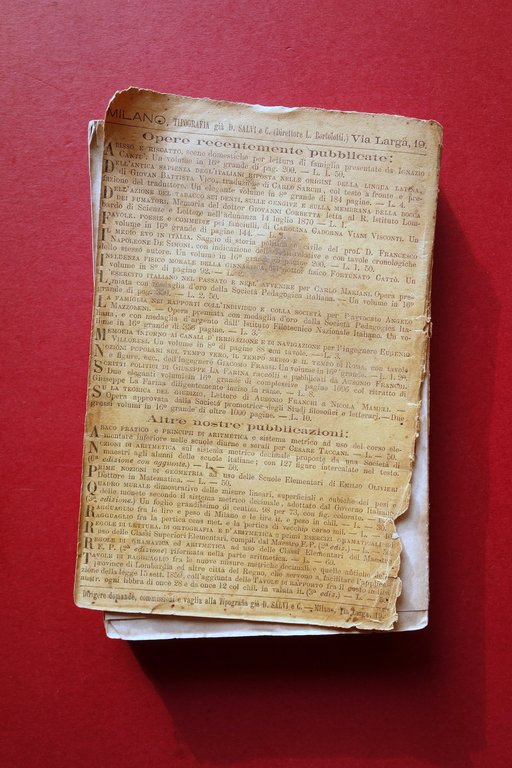 MILANO, TIPOGRAFIA già D. SALVI e C. (Direttore L. Bortolotti.) Via Larga, 19.
Opere recentemente pubblicate:
ABISSO E RISCATTO, scene domestiche per lettura di famiglia presentate da IGNAZIO
CANTÙ. Un volume in 16º grande di pag. 200. — L. 1. 50.
DELL'ANTICA SAPIENZA DEGL'ITALIANI RIPOSTA NELLE ORIGINI DELLA LINGUA LATINA
di GIOVAN BATTISTA VICO, traduzione di CARLO SARCHI, col testo a fronte e
zione del traduttore. Un elegante volume in 8º grande di 184 pagine. — L. 4.
DELL'AZIONE DEL TABACCO SUI DENTI, SULLE GENGIVE E SULLA MEMBRANA DELLA BOCCA
DEI FUMATORI, Memoria del dottor GIOVANNI CORBETTA letta al R. Istituto Lom-
bardo di Scienze e Lettere nell'adunanza 14 luglio 1870 — L. 1.
FAVOLE, POESIE E COMMEDIE pei fanciulli, di CAROLINA GADORNA VIANI VISCONTI. Un
volume in 16º grande di pagine 144. — L.
IL MEDIO EVO IN ITALIA, Saggio di storia civile del prof. D. FRANCESCO
NAPOLEONE DE SIMONI, con indicazione e con tavole cronologiche
dello stesso autore. Un volume in 200. — L.
INFLUENZA FISICO MORALE DELLA GINNASTICA fisico FORTUNATO CATTÒ. Un
volume in 8º di pagine 92. —
L'ESERCITO ITALIANO NEL PASSATO E NELL'AVVENIRE per CARLO MARIANI. Opera pre-
miata con medaglia d'oro della Società Pedagogica italiana. — Un volume in 16º
grande di pag. — L. 2. 50.
LA FAMIGLIA NEI RAPPORTI COLL'INDIVIDUO E COLLA SOCIETÀ per l'avvocato ANGELO
MAZZOLENI. — Opera premiata con medaglia d'oro della Società Pedagogica Ita-
liana, e con medaglia d'argento dall'Istituto Filotecnico Nazionale Italiano. Un
volume in 16º grande di 356 pagine. — L. 3.
MEMORIA INTORNO AI CANALI D'IRRIGAZIONE E DI NAVIGAZIONE per l'Ingegnere EUGENIO
VILLORESI. Un volume in 8º di pagine 88 con tavole. — L. 3.
NOZIONI POPOLARI SUL TEMPO VERO, IL TEMPO MEDIO E IL TEMPO DI ROMA, con tavole
e figure, ecc., dell'Ingegnere GIACOMO FRASSI. Un volume in 16º pagine.
SCRITTI POLITICI DI GIUSEPPE LA FARINA raccolti e pubblicati da AUSONIO FRANCHI.
Due eleganti volumi in 16º grande di complessive pagine 1095 col ritratto di
Giuseppe La Farina diligentemente inciso in rame. — L. 8.
SU LA TEORICA DEL GIUDIZIO, Lettere di AUSONIO FRANCHI A NICOLA MAMELI. —
Opera approvata dalla Società promotrice degli Studj filosofici e letterarj. — Due
grossi volumi in 16º grande di oltre 1000 pagine. — L. 10.
Altre nostre pubblicazioni:
ABACO PRATICO E PRINCIPII DI ARITMETICA e sistema metrico ad uso del corso ele-
mentare inferiore nelle scuole diurne e serali per CESARE TACCANI. — L. — 50.
NOZIONI DI ARITMETICA sul sistema metrico decimale, proposte da una Società di
maestri agli alunni delle scuole italiane; con 127 figure intercalate nel testo.
(6ª edizione con aggiunte.) — L. — 50.
PRIME NOZIONI DI GEOMETRIA ad uso delle Scuole Elementari di EMILIO OLIVIERI
Dottore in Matematica. — L. — 50.
QUADRO MURALE dimostrativo delle misure lineari, superficiali e cubiche, dei pesi e
delle monete secondo il sistema metrico decimale, adottato dal Governo Italiano.
(3ª edizione.) Un foglio grandissimo di centim. 98 per 75, con fig. colorate. —
RAGGUAGLIO fra le lire e peso di Milano e le lire it. e peso in chil. — L.
RAGGUAGLIO fra la pertica cens. met. e la pertica di vecchio corso mil. — L.
REGOLE DI LETTURA, DI ORTOGRAFIA E D'ARITMETICA E PRIMI ESERCIZI GRAMMATICALI
uso delle Classi Superiori Elementari, compil. dal Maestro F. P. (2ª ediz.) —
REGOLE DI GRAMMATICA ed ARITMETICA ad uso delle Classi
F. P. (2ª edizione) riformata nella parte aritmetica. — L. — 60.
TAVOLE DI RAGGUAGLIO fra le nuove misure metriche decimali
Province di Lombardia e delle città del Regno, che servono a facilitare l'applica-
zione della legge 15 sett. 1859, coll'aggiunta delle TAVOLE DI RAPPORTO fra il
austr. ogni libbra di once 28 e da once 12 col chil. in valuta it. (3ª ediz.) — L. — 50.
Dirigere domande, commissioni e vaglia alla Tipografia già D. SALVI e C. — Milano, Via Larga, 19.